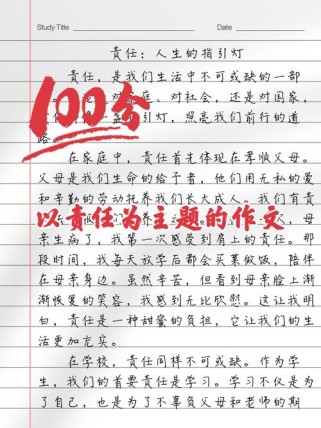 Study Title
Date
责任：人生的指引灯
责任，是我们生活中不可或缺的一部
对家庭、对社会，还是对国家，
引灯，照亮我们前行的道
路。
100分
在家庭中，责任首先体现在孝顺父母。
父母是我们生命的给予者，他们用无私的爱
和辛勤的劳动托养我们长大成人。我们有
以责任为主题的作文
母亲
亲生病了，我第一次感受到肩上的责任。那
段时间，我每天放学后都会买菜做饭，陪伴
在母亲身边。虽然辛苦，但看到母亲脸上渐
渐恢复的笑容，我感到无比欣慰。这让我明
白，责任是一种甜蜜的负担，它让我们的生
活更加充实。
在学校，责任同样不可或缺。作为学
生，我们的首要责任是学习。学习不仅是为
了自己，也是为了不辜负父母和老师的期